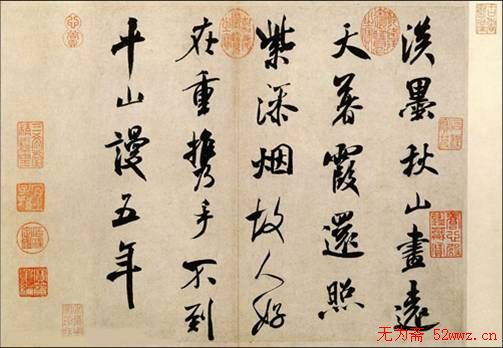 淡墨秋山畫遠
天暮霞還照
紫添烟故人好
在重携手不到
平山謾五年
无为斋 52wwz.cn